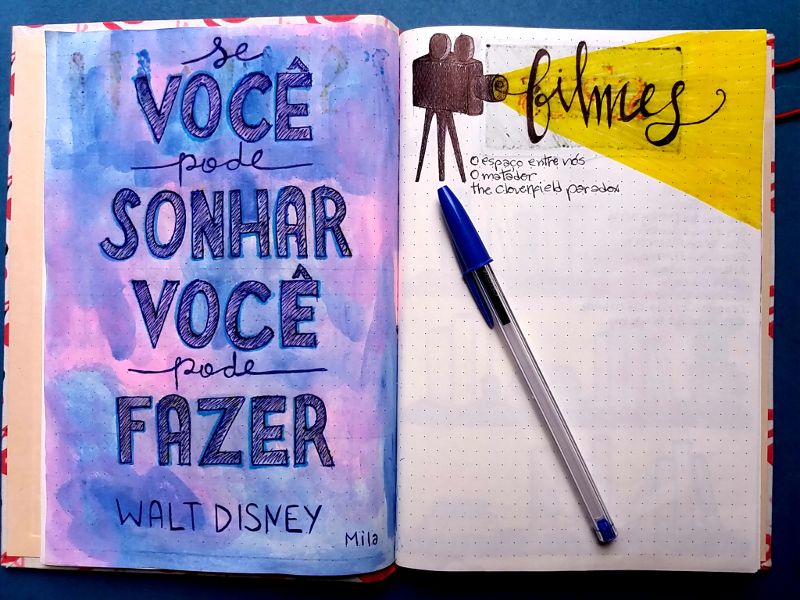 se
VOCÊ
pode
SONHAR
VOCÊ
pode
FAZER
WALT DISNEY
Mila
filmes
O espaço entre nós
O matador
the clovenfield paradox